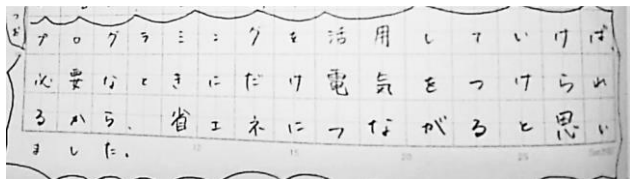 つぎ
プログラミングを活用していけば、
必要なときにだけ電気をつけられ
るから、省エネにつながると思い
ました。
10 15 20 25